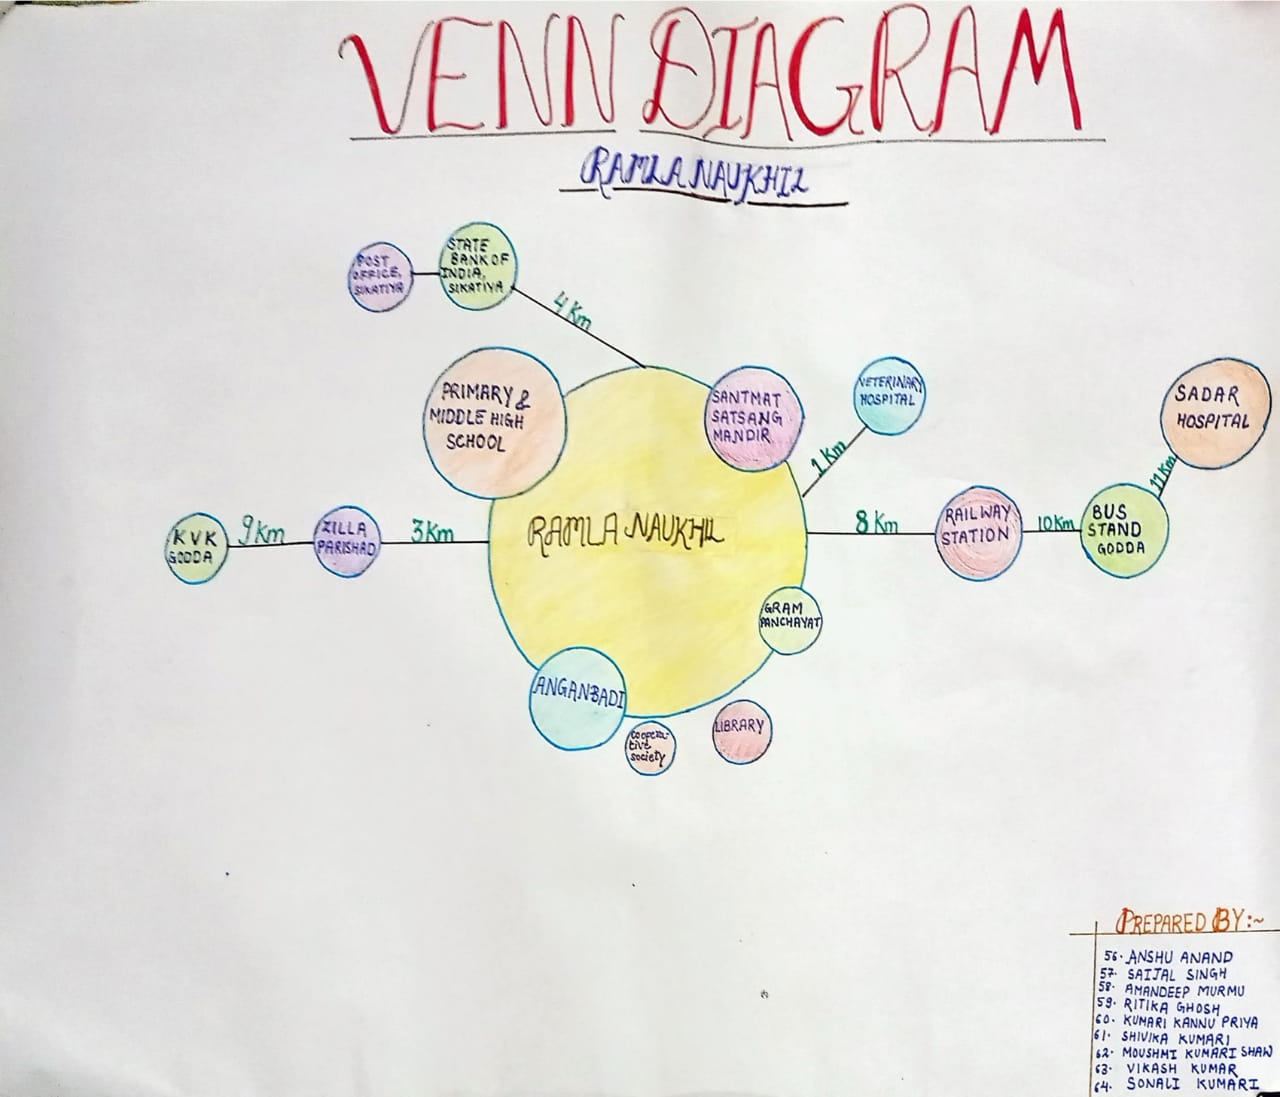 VENN DIAGRAM
RAMLA NAUKHIL
POST
OFFICE,
SIKATIYA
STATE
BANK OF
INDIA,
SIKATIYA
4 Km
PRIMARY &
MIDDLE HIGH
SCHOOL
SANTMAT
SATSANG
MANDIR
VETERINARY
HOSPITAL
1 Km
SADAR
HOSPITAL
11 Km
KVK
GODDA
9 Km
ZILLA
PARISHAD
3 Km
RAMLA NAUKHIL
8 Km
RAILWAY
STATION
10 Km
BUS
STAND
GODDA
GRAM
PANCHAYAT
ANGANBADI
Coopera-
tive
society
LIBRARY
PREPARED BY:~
56. ANSHU ANAND
57. SAIJAL SINGH
58. AMANDEEP MURMU
59. RITIKA GHOSH
60. KUMARI KANNU PRIYA
61. SHIVIKA KUMARI
62. MOUSHMI KUMARI SHAW
63. VIKASH KUMAR
64. SONALI KUMARI